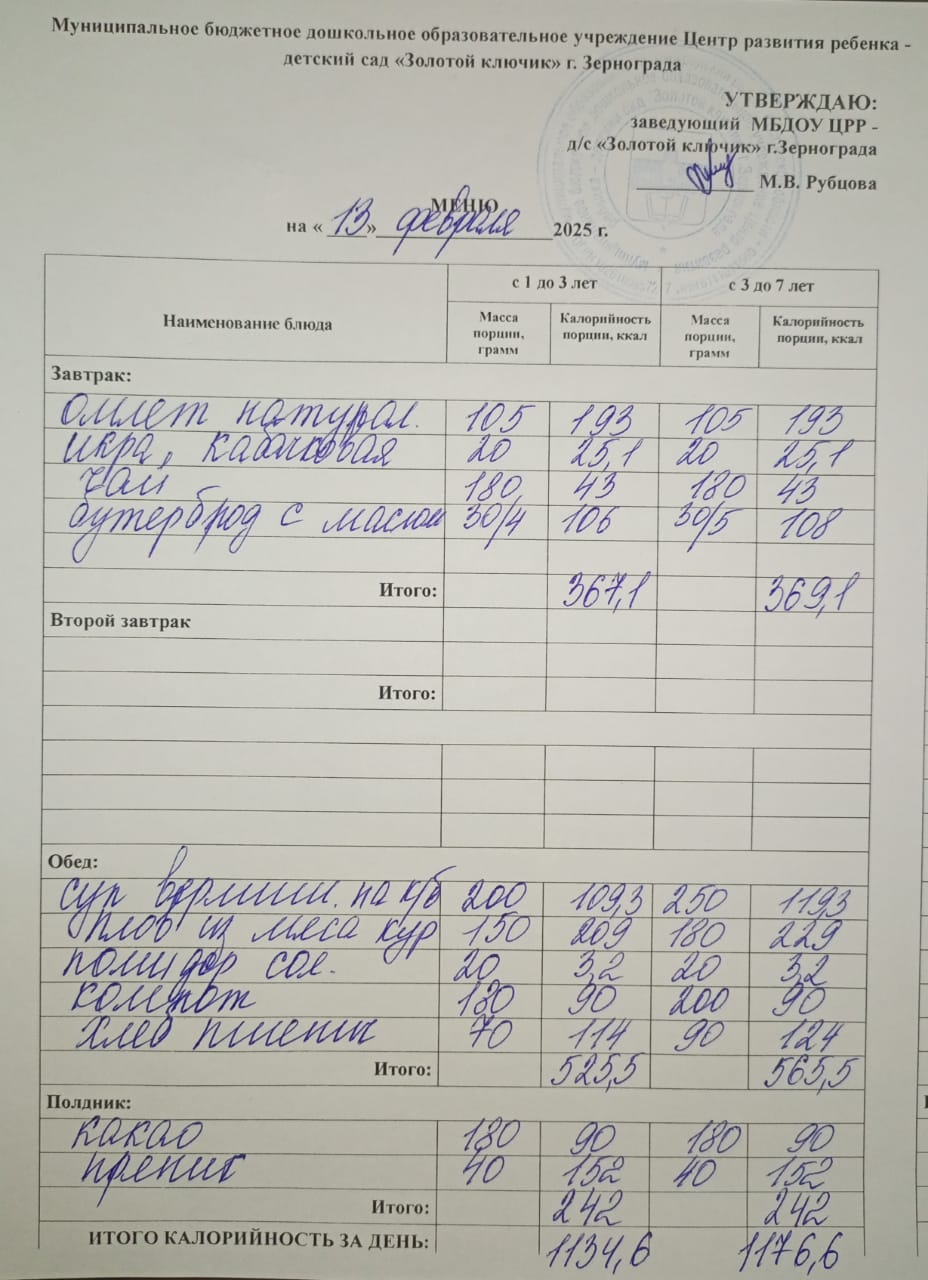 Муниципальное бюджетное дошкольное образовательное учреждение Центр развития ребенка -
детский сад «Золотой ключик» г. Зернограда
УТВЕРЖДАЮ:
заведующий МБДОУ ЦРР -
д/с «Золотой ключик» г.Зернограда
М.В. Рубцова
МЕНЮ
на « 13 » февраля 2025 г.
Наименование блюда с 1 до 3 лет с 3 до 7 лет
Масса порции, грамм Калорийность порции, ккал Масса порции, грамм Калорийность порции, ккал
Завтрак:
омлет натурал. 105 193 105 193
икра, кабачковая 20 25,1 20 25,1
чай 180 43 180 43
бутерброд с маслом 30/4 106 30/5 108
Итого: 367,1 369,1
Второй завтрак
Итого:
Обед:
суп вермиш. на к/б 200 109,3 250 119,3
плов из мяса кур 150 209 180 229
помидор сол. 20 3,2 20 3,2
компот 180 90 200 90
хлеб пшенич 70 114 90 124
Итого: 525,5 565,5
Полдник:
какао 180 90 180 90
пряник 40 152 40 152
Итого: 242 242
ИТОГО КАЛОРИЙНОСТЬ ЗА ДЕНЬ: 1134,6 1176,6